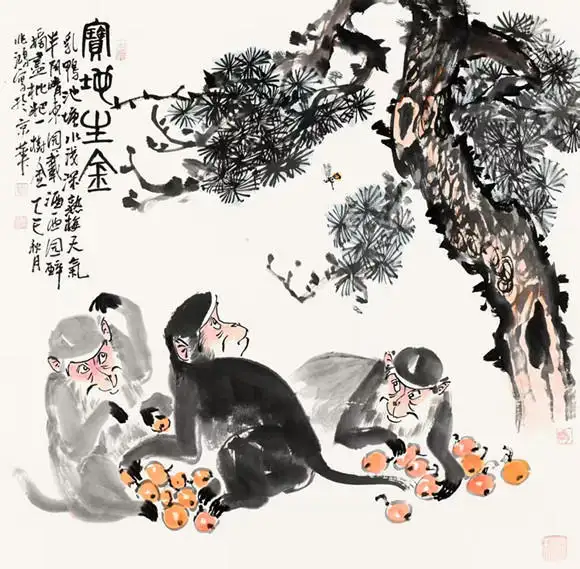 寶地生金
乳鴨池塘水淺深熟梅天氣
半陰晴東園載酒西園醉
摘盡枇杷一樹金乙巳秋月
兆鴻寫於京華